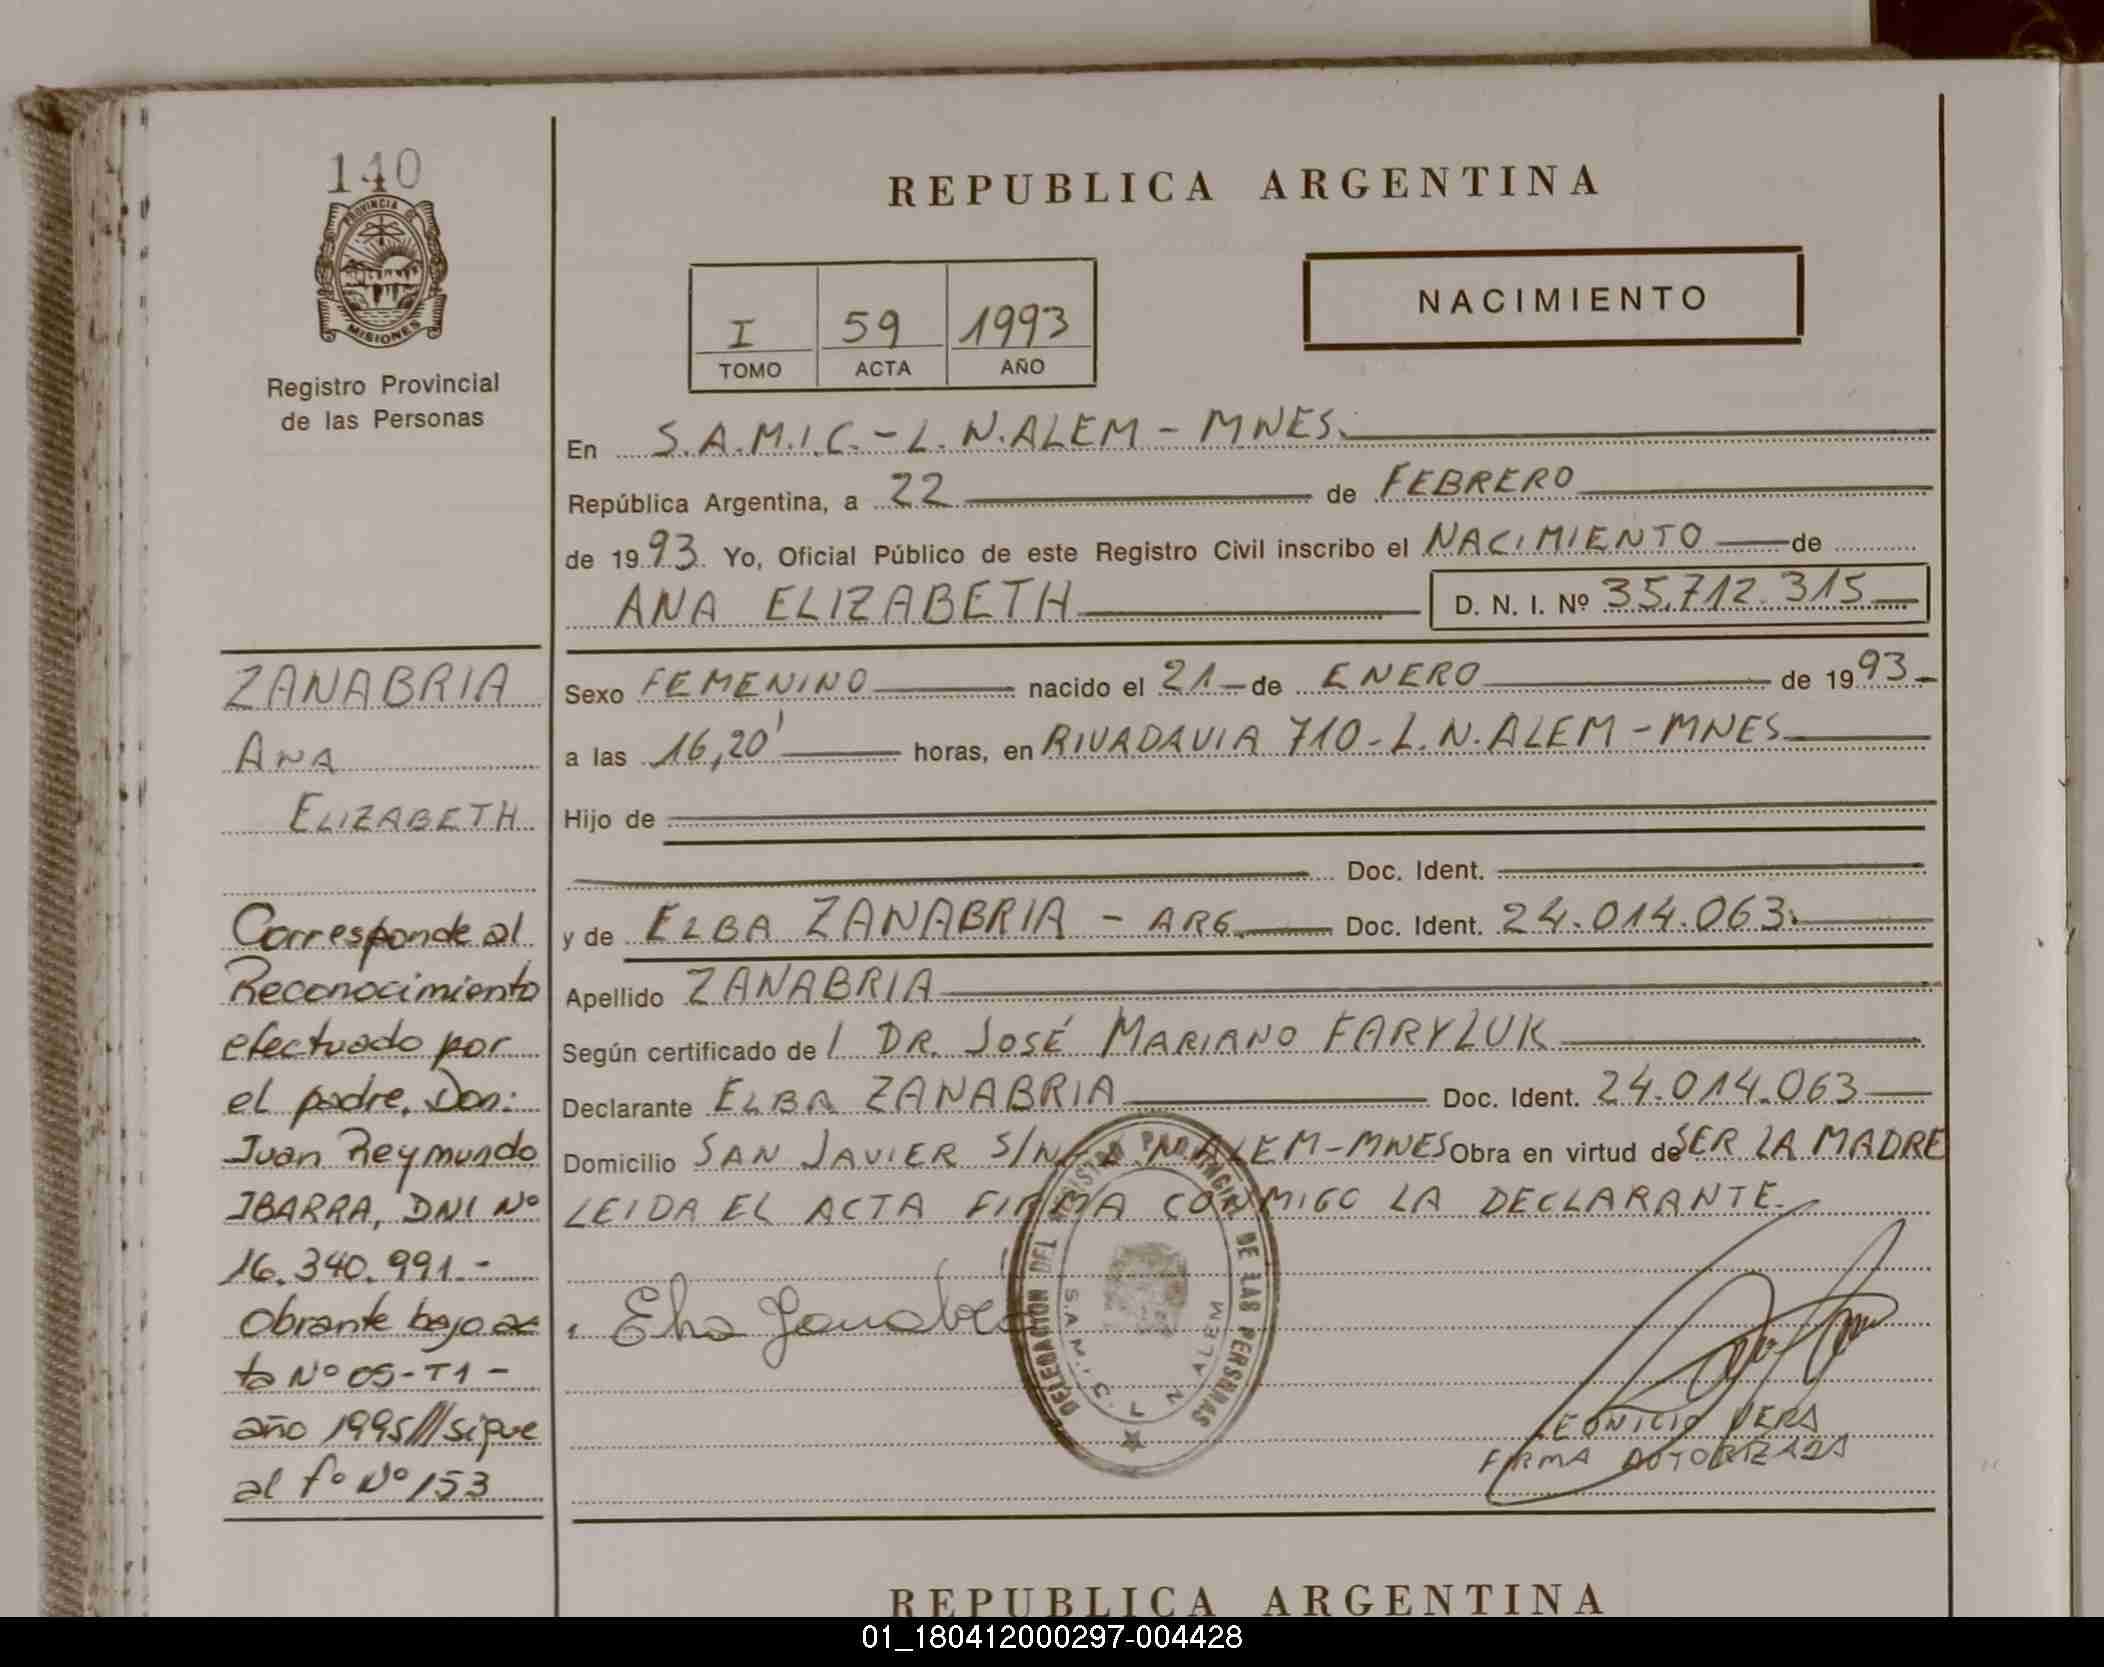 140
PROVINCIA DE
MISIONES
Registro Provincial
de las Personas
REPUBLICA ARGENTINA
I 59 1993
TOMO ACTA AÑO
NACIMIENTO
En S.A.M.I.C. - L. N. ALEM - MNES.
República Argentina, a 22 de FEBRERO
de 1993. Yo, Oficial Público de este Registro Civil inscribo el NACIMIENTO de
ANA ELIZABETH D. N. I. Nº 35.712.315
Sexo FEMENINO nacido el 21 de ENERO de 1993
a las 16,20' horas, en RIVADAVIA 710 - L. N. ALEM - MNES
Hijo de
Doc. Ident.
y de ELBA ZANABRIA - ARG. Doc. Ident. 24.014.063.
Apellido ZANABRIA
Según certificado de l DR. JOSÉ MARIANO FARYLUK
Declarante ELBA ZANABRIA Doc. Ident. 24.014.063
Domicilio SAN JAVIER S/N - L. N. ALEM - MNES Obra en virtud de SER LA MADRE
LEIDA EL ACTA FIRMA CONMIGO LA DECLARANTE.
ZANABRIA
ANA
ELIZABETH
Corresponde al
Reconocimiento
efectuado por
el padre, Don:
Juan Reymundo
IBARRA, DNI Nº
16.340.991.-
Obrante bajo ac
ta Nº 05-T1-
año 1995///sigue
al fº Nº 153
Elba Zanabria
DELEGACION DEL REGISTRO PROVINCIAL DE LAS PERSONAS
S.A.M.I.C. L N ALEM
LEONICIO VERA
FIRMA AUTORIZADA
REPUBLICA ARGENTINA
01_180412000297-004428